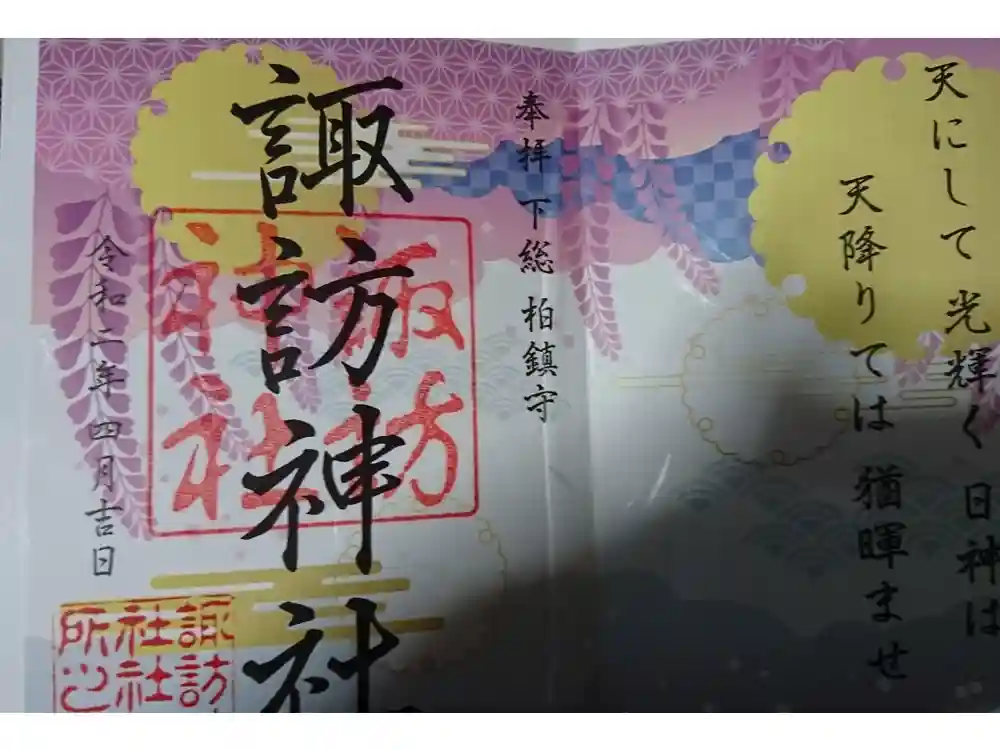 天にして 光輝く 日神は
天降りては 猶暉ませ
奉拝 下総 柏鎮守
諏訪神社
諏訪
神社
令和二年四月吉日
諏訪
社社
所